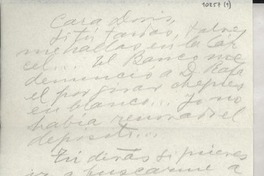 Cara Doris,
Si tú tardas, talvez
me hallas en la cár-
cel... El Banco me
denuncio a D. Rafa
el por girar cheques
en blanco... Yo no
había renovado el
depósito...
Tú dirás si quieres
a buscarme a